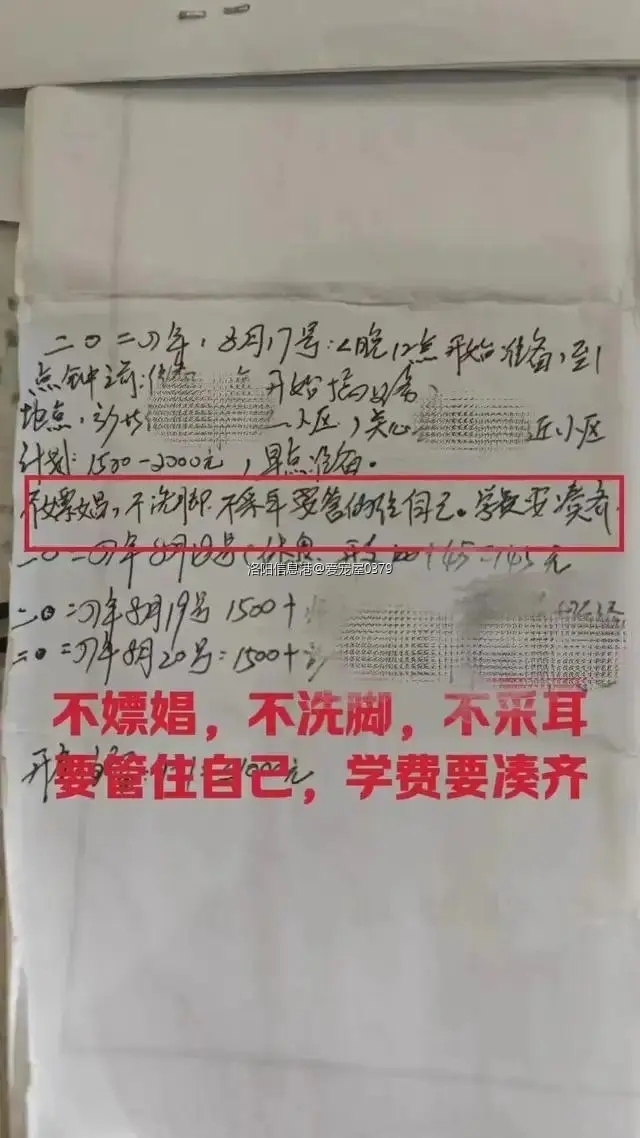 二〇二四年,8月17号:晚12点开始准备,至1
点钟之前 开始搞任务,
地点, 小区,关心 近小区
计划:1500-2000元,早点准备。
不嫖娼,不洗脚 不采耳 要管住自己。学费要凑齐,
二〇二四年8月18号 休息, 开支 100+45=145元
洛阳信息港@爱宠屋0379
二〇二四年8月19号 1500+
二〇二四年8月20号:1500+
不嫖娼,不洗脚,不采耳
要管住自己,学费要凑齐